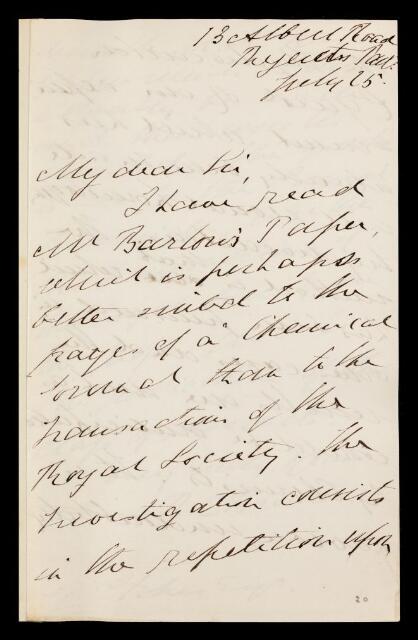 13 Albert Road
Regents Park
July 25.
My dear Sir,
I have read
Mr Barlow's Paper,
which is perhaps
better suited to the
pages of a Chemical
Journal than to the
Transactions of the
Royal Society. The
investigation consists
in the repetition upon
20